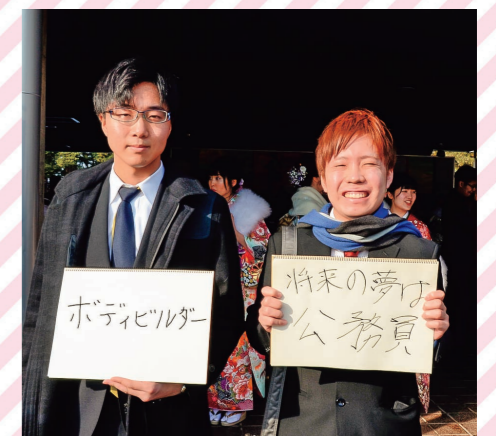 ボディビルダー
将来の夢は
公務員